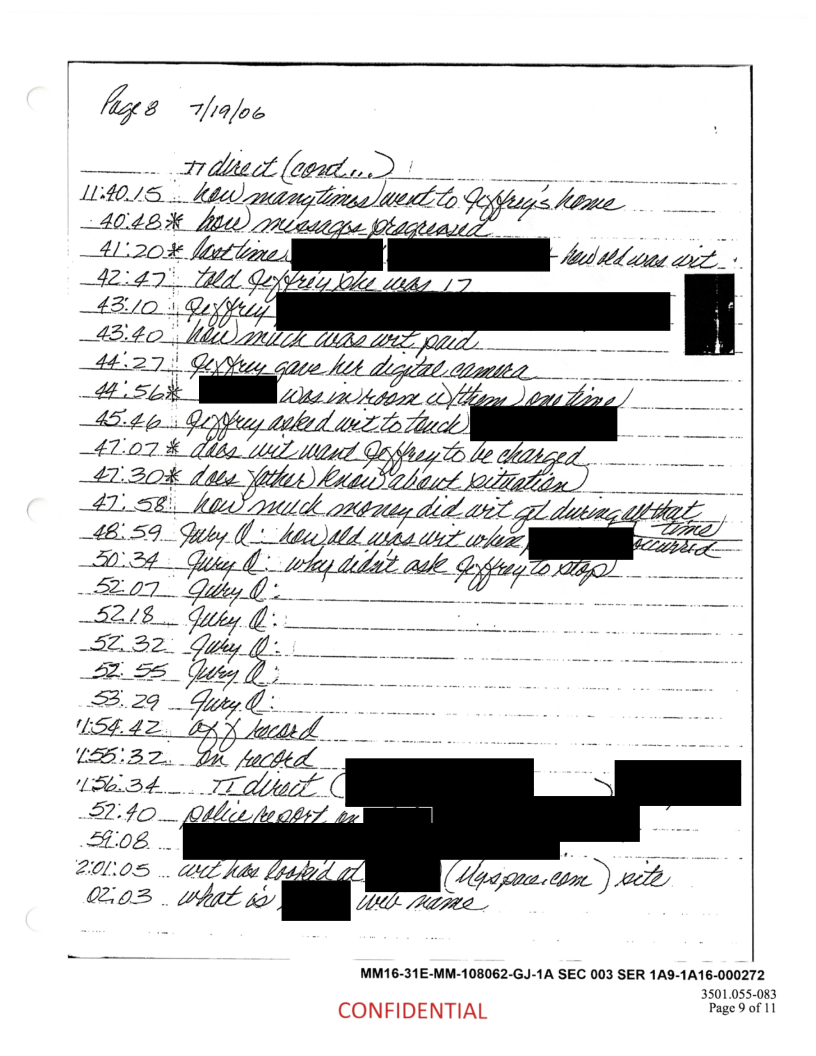 Page 8 7/19/06
π direct (cond...)
11:40.15 how many times went to Jeffrey's home
40:48* how messages progressed
41:20* last times - how old was wit
42:47 told Jeffrey she was 17
43:10 Jeffrey
43:40 how much was wit paid
44:27 Jeffrey gave her digital camera
44:56* was in room w/them one time
45.46 Jeffrey asked wit to touch
47:07* does wit want Jeffrey to be charged
47:30* does father know about situation
47:58 how much money did wit get during all that time
48:59 Jury Q: how old was wit when occurred
50:34 Jury Q: why didn't ask Jeffrey to stop
52:07 Jury Q:
52.18 Jury Q:
52.32 Jury Q:
52:55 Jury Q:
53.29 Jury Q:
11:54.42 off record
11:55:32 on record
11:56:34 π direct ( )
57:40 police report on
59:08
2:01:05 wit has looked at (Myspace.com) site
02:03 what is web name
MM16-31E-MM-108062-GJ-1A SEC 003 SER 1A9-1A16-000272
3501.055-083
Page 9 of 11
CONFIDENTIAL